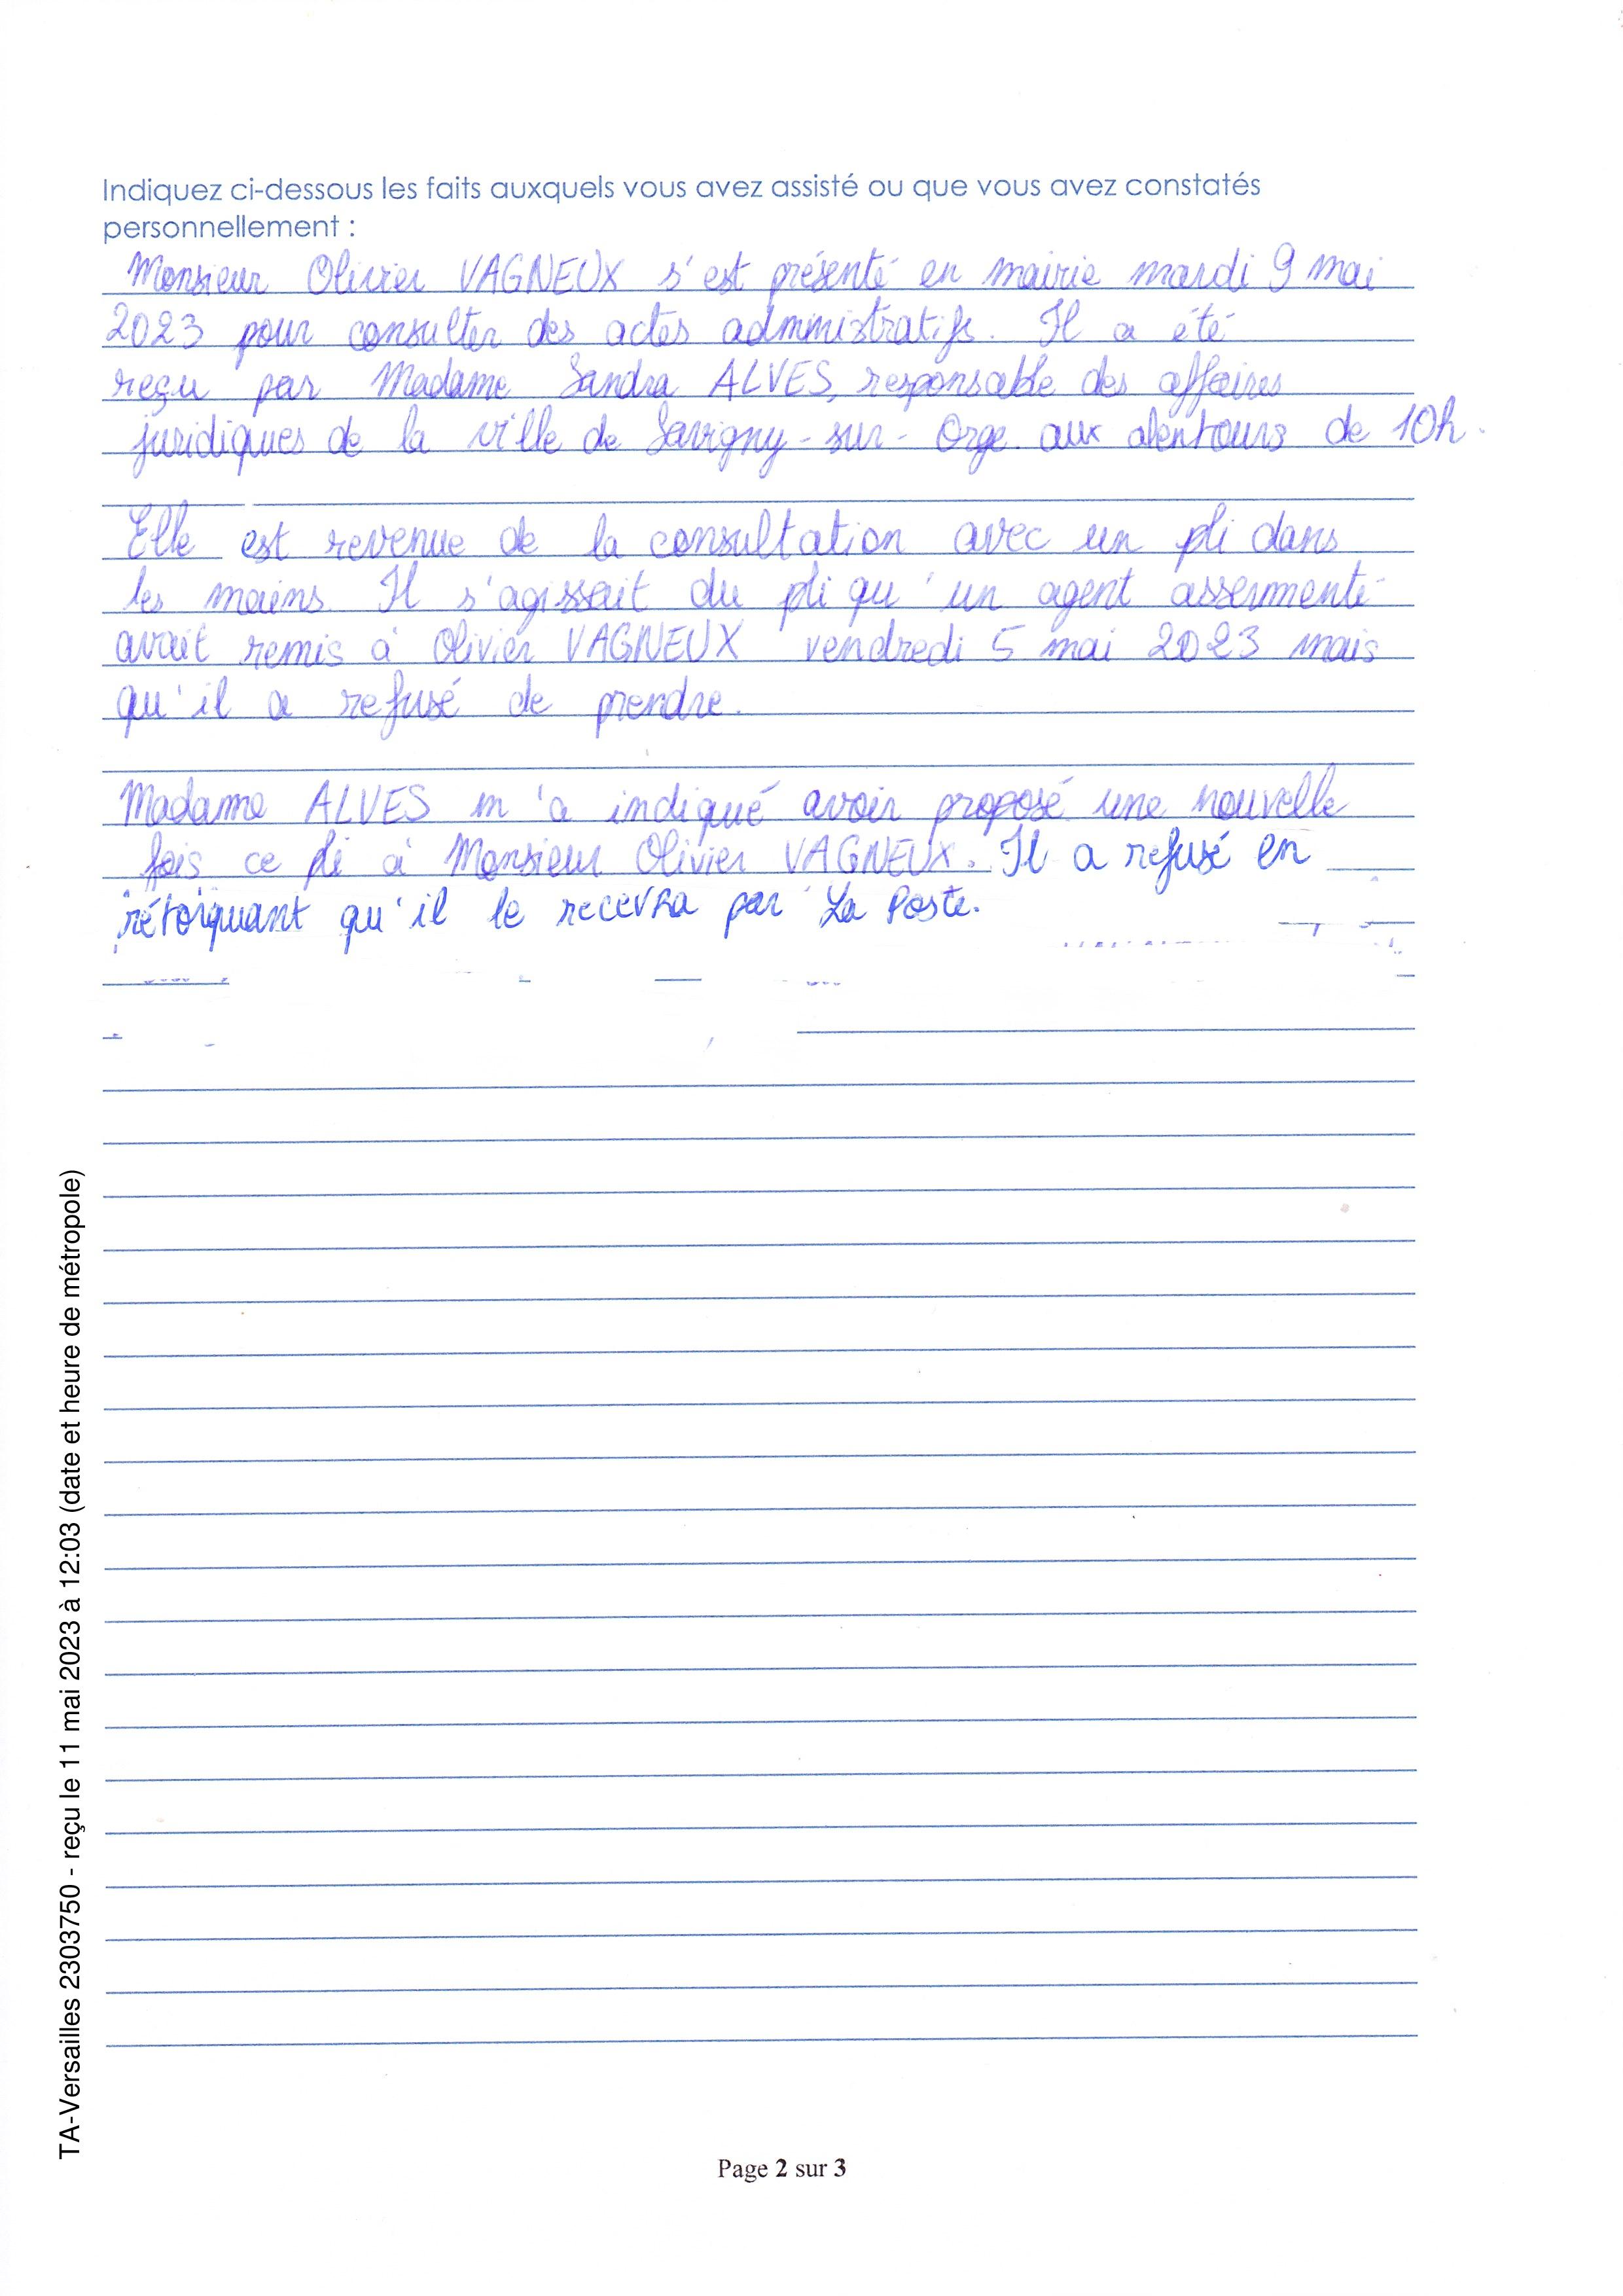 Indiquez ci-dessous les faits auxquels vous avez assisté ou que vous avez constatés
personnellement :
Monsieur Olivier VAGNEUX s'est présenté en mairie mardi 9 mai
2023 pour consulter des actes administratifs. Il a été
reçu par Madame Sandra ALVES, responsable des affaires
juridiques de la ville de Savigny-sur-Orge aux alentours de 10h.
Elle est revenue de la consultation avec un pli dans
les mains. Il s'agissait du pli qu'un agent assermenté
avait remis à Olivier VAGNEUX vendredi 5 mai 2023 mais
qu'il a refusé de prendre.
Madame ALVES m'a indiqué avoir proposé une nouvelle
fois ce pli à Monsieur Olivier VAGNEUX. Il a refusé en
rétorquant qu'il le recevra par La Poste.
TA-Versailles 2303750 - reçu le 11 mai 2023 à 12:03 (date et heure de métropole)
Page 2 sur 3